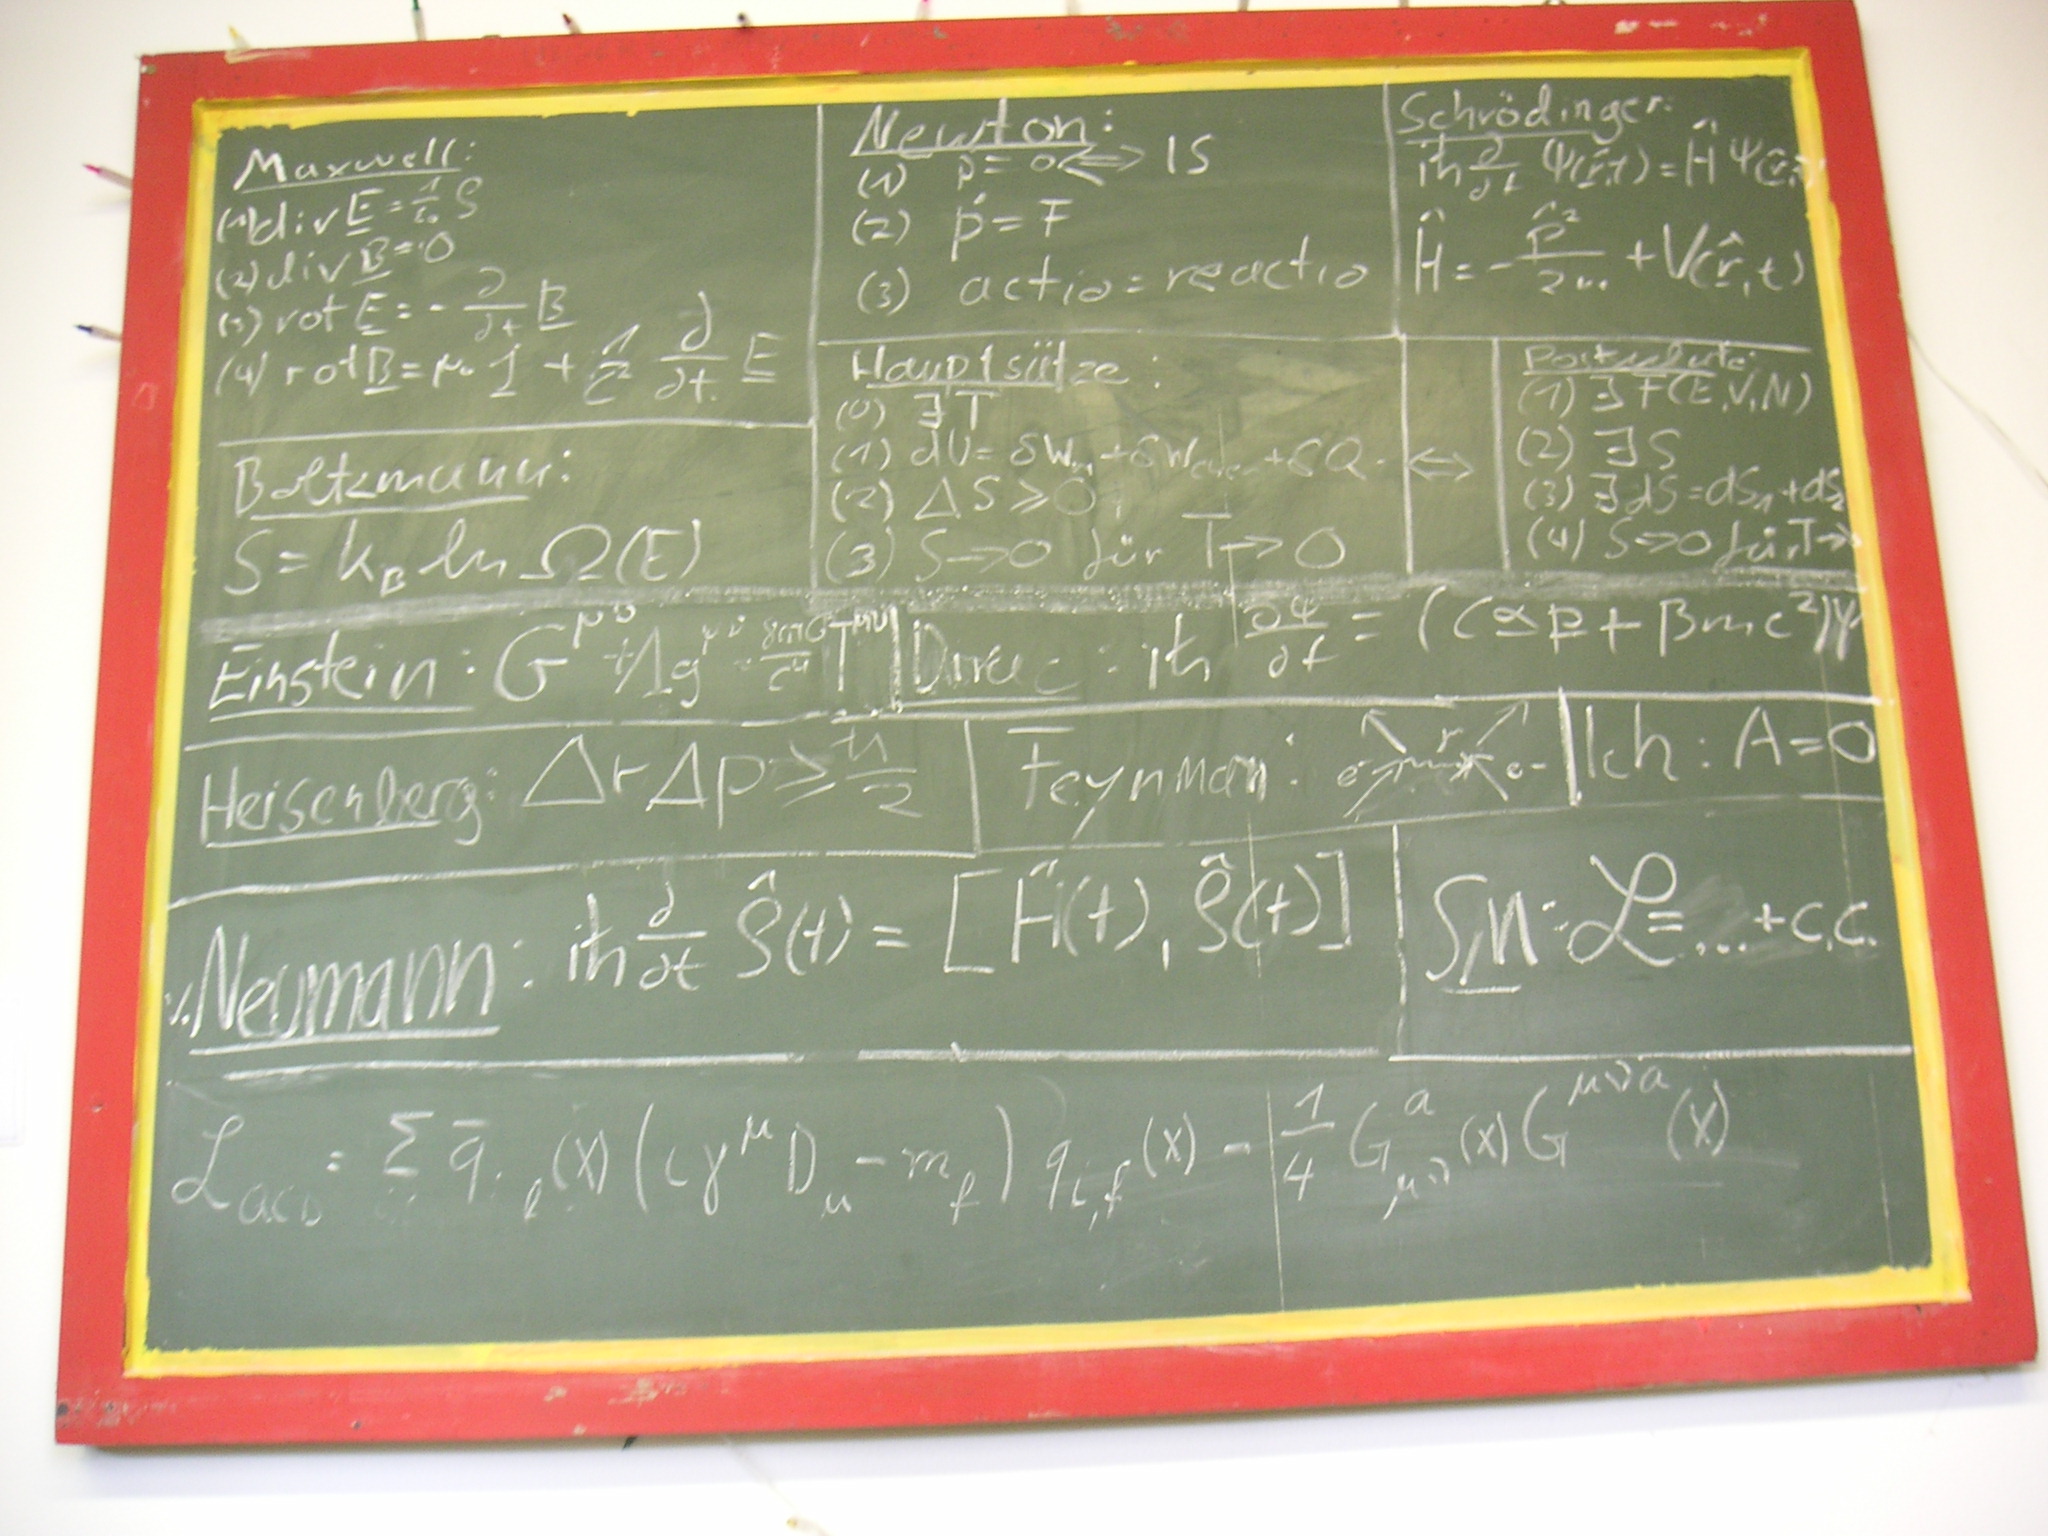 Maxwell:
(1) div E = 1/ε₀ ρ
(2) div B = 0
(3) rot E = - ∂/∂t B
(4) rot B = μ₀ j + 1/c² ∂/∂t E
Boltzmann:
S = k_B ln Ω(E)
Newton:
(1) ṗ = 0 <=> IS
(2) ṗ = F
(3) actio = reactio
Schrödinger:
iħ ∂/∂t Ψ(r,t) = Ĥ Ψ(r,t)
Ĥ = - p̂²/2m + V(r̂,t)
Hauptsätze:
(0) ∃ T
(1) dU = δW_m + δW_chem + δQ
(2) ΔS ≥ 0
(3) S → 0 für T → 0
<=>
Postulate:
(1) ∃ F(E,V,N)
(2) ∃ S
(3) ∃ dS = dS₁ + dS₂
(4) S → 0 für T →
Einstein: G^μν + Λg^μν = 8πG/c⁴ T^μν
Dirac: iħ ∂Ψ/∂t = (c α p + βmc²)Ψ
Heisenberg: Δr Δp ≥ ħ/2
Feynman: e⁻ r e⁻
Ich: A = 0
v. Neumann: iħ ∂/∂t ρ̂(t) = [Ĥ(t), ρ̂(t)]
ℒ = ... + c.c.
ℒ_QCD = Σ q̄ f (x) (iγ^μ D_μ - m_f) q_i,f (x) - 1/4 G^a_μν (x) G^μνa (x)